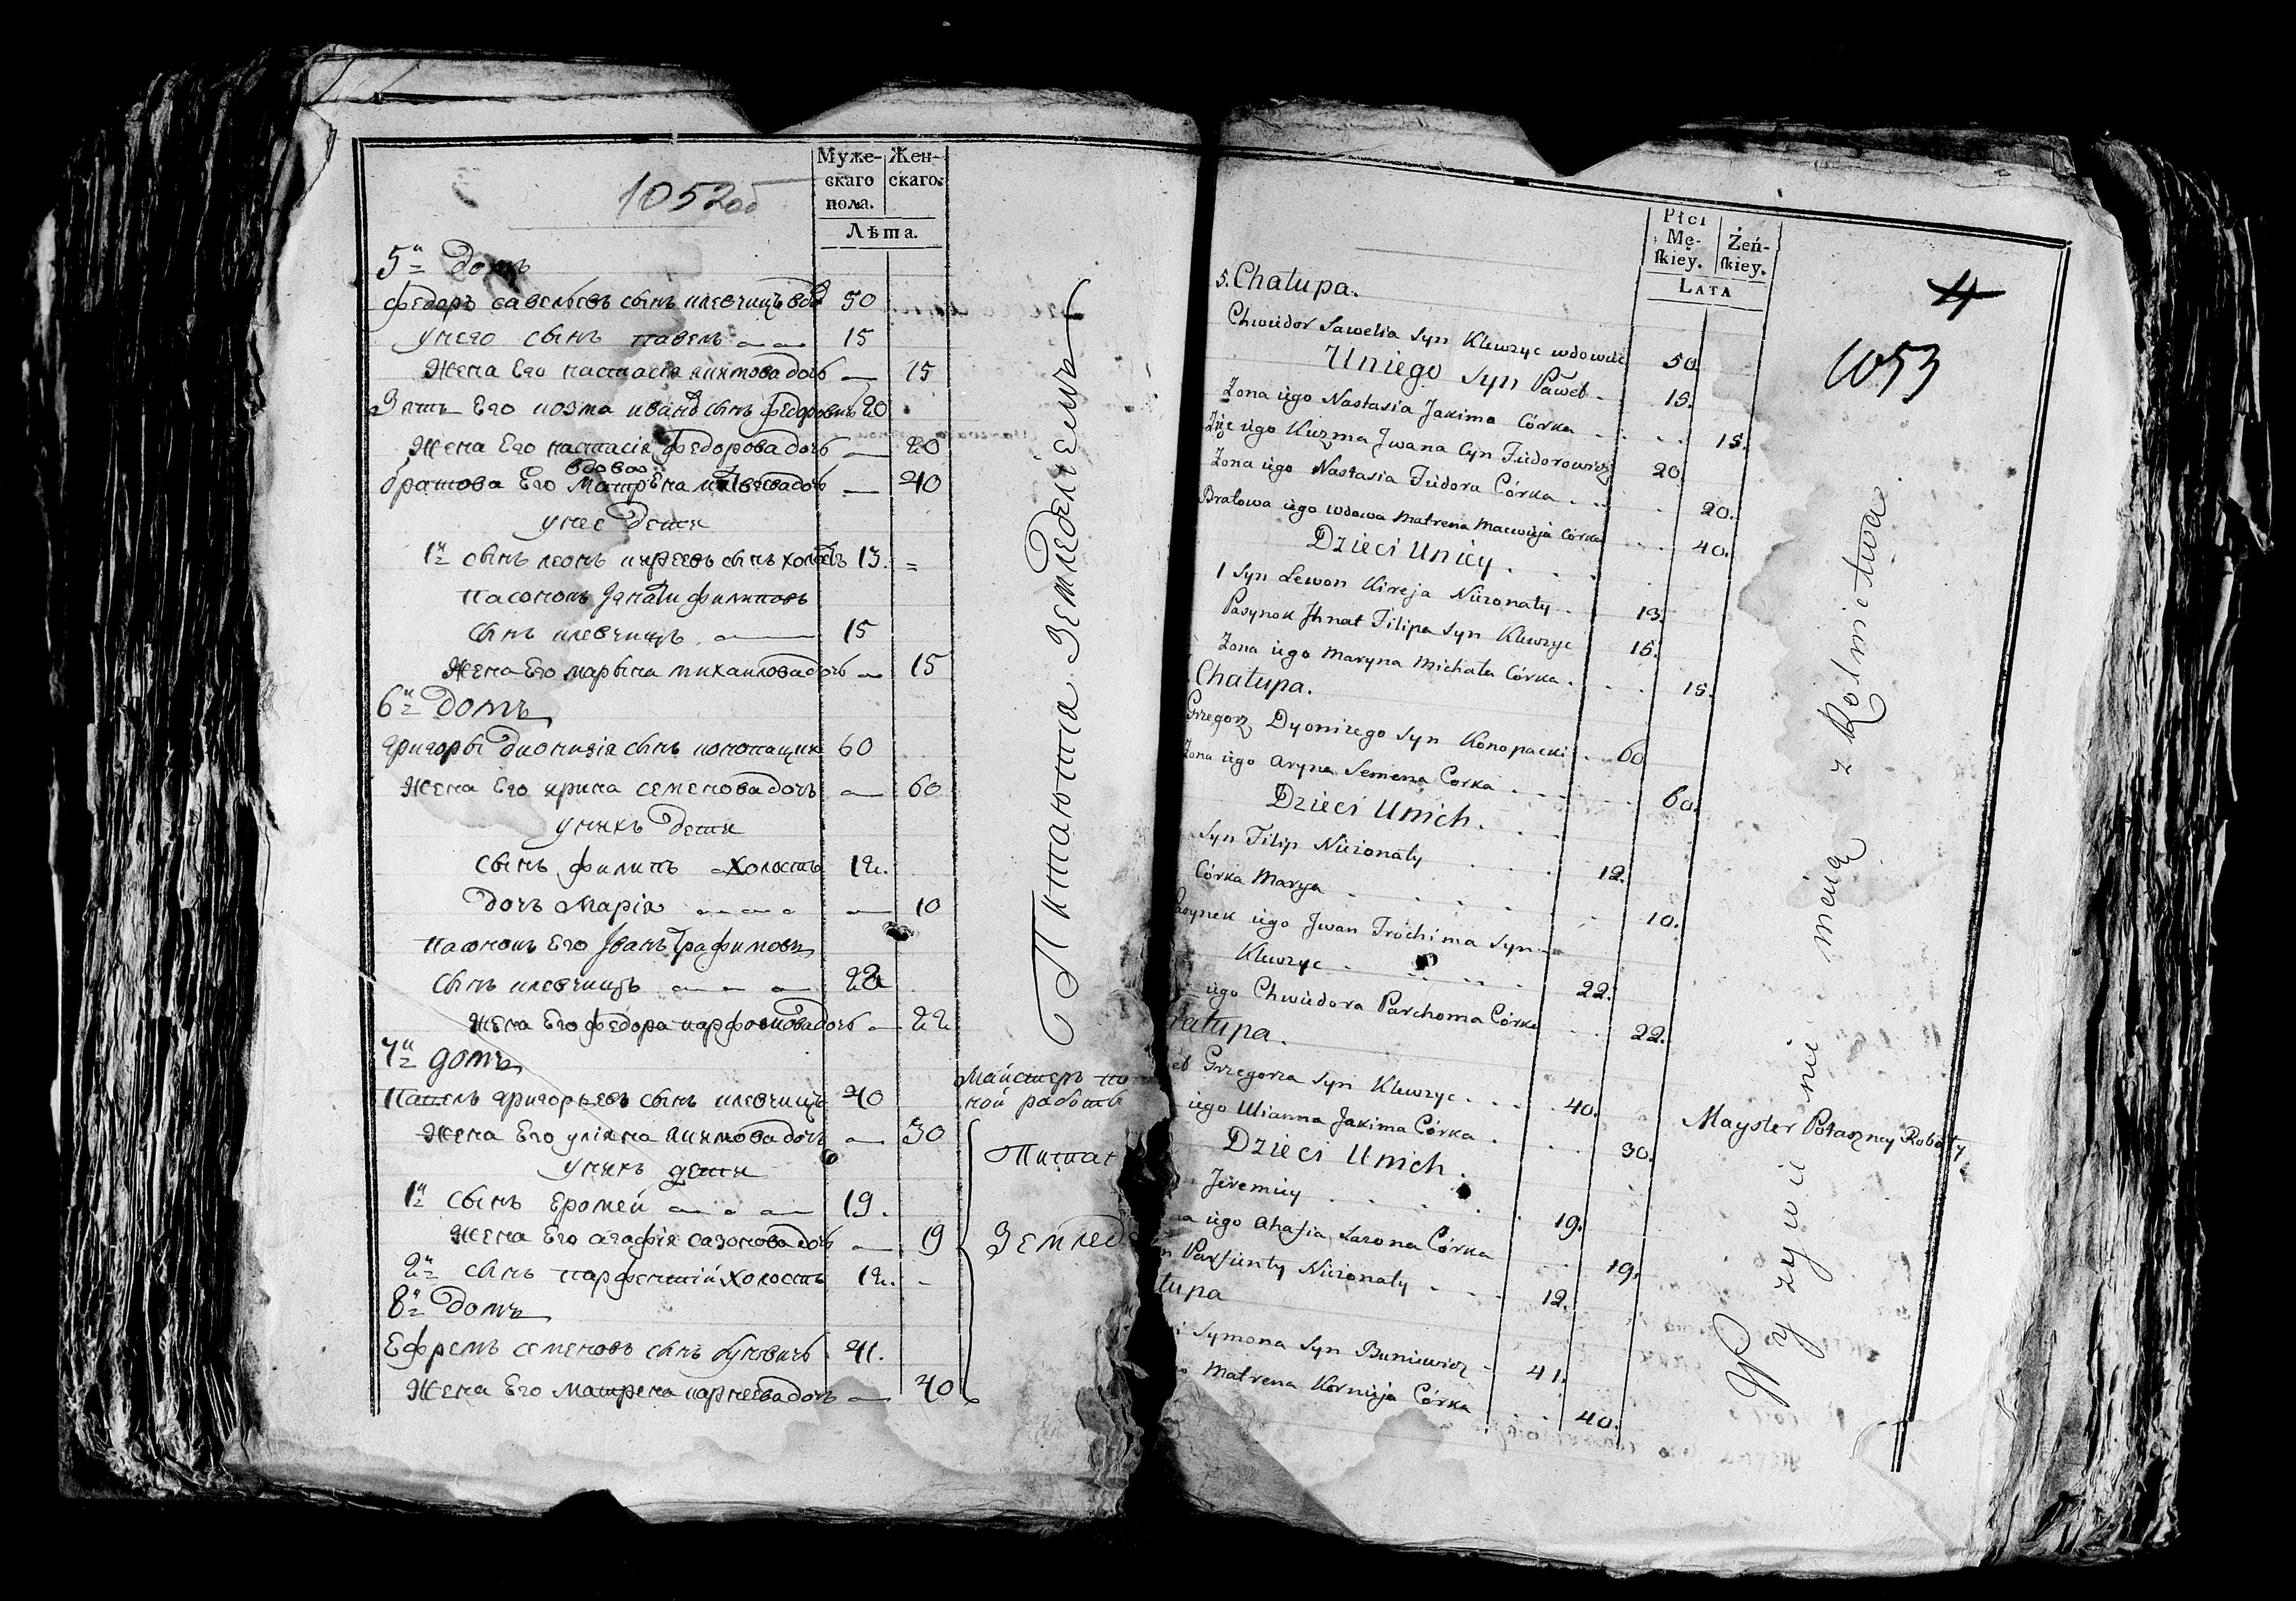 1052об
Муже-
скаго
пола.
Жен-
скаго.
Лѣта.
5й Домъ
федоръ савельевъ сынъ клевчицъ вдо 50
унего сынъ павелъ 15
Жена Его настасія якимова дочь 15
Зять Его козма иванъ сынъ федоровичъ 20
Жена Его настасія федорова дочь 20
вдова
братова Его матрена дочь 40
унее дети
1й сынъ леонъ киреевъ сынъ холостъ 13.
пасонокъ Игнатъ филиповъ
сынъ клевчицъ 15
Жена Его марына михаилова дочь 15
6й Домъ
григоры дионизія сынъ конопацки 60
Жена Его ирина семенова дочь 60
унихъ дети
сынъ филипъ холостъ 12.
дочь Марія 10
пасонокъ Его Иванъ Трафимовъ
сынъ клевчицъ 22
Жена Его федора парфомова дочь 22
7й домъ
павелъ григорьевъ сынъ клевчицъ 40
Жена Его уліяна якимова дочь 30
унихъ дети
1й сынъ Еромей 19.
Жена Его агафія сазонова дочь 19
2й сынъ парфентій холостъ 12.
8й Домъ
Ефремъ семеновъ сынъ буневичъ 41.
Жена Его матрена корнеева дочь 40
Питаютца Земледелiемъ
Майстеръ по
ной работы
Питаю
Землед
Płci
Mę-
skiey.
Żeń-
skiey.
LATA
4
1053
5. Chałupa.
Chwiedor Sawelia Syn Klewzyc wdowiec 50.
Uniego Syn Paweł 15.
Zona iego Nastasia Jakima Córka 15.
Zięc iego Kuzma Jwana Syn Fiedorowicz 20.
Zona iego Nastasia Fiedora Córka 20.
Bratowa iego wdowa Matrena Maciwieja Córka 40.
Dzieci Uniey
1 Syn Lewon Kireja Nieżonaty 13.
Pasynok Jhnat Filipa Syn Klewzyc 15.
Zona iego Maryna Michała Córka 15.
Chałupa.
Grzegorz Dyonizego Syn Konopacki 60
Zona iego Aryna Semena Corka 60.
Dzieci Unich.
Syn Filip Nieżonaty 12.
Córka Marya 10.
Pasynek iego Jwan Trochima Syn
Klewzyc 22.
iego Chwiedora Parchoma Córka 22.
hałupa.
eł Grzegorza Syn Klewzyc 40.
iego Ulianna Jakima Córka 30.
Dzieci Unich.
Jeremiey 19.
na iego Ahafia Sazona Córka 19.
n Parfienty Nieżonaty 12.
łupa
i Symona Syn Buniewicz 41.
o Matrena Kornieja Córka 40.
Mayster Potaszney Roboty
Wyzywienie mieią z Rolnictwa.